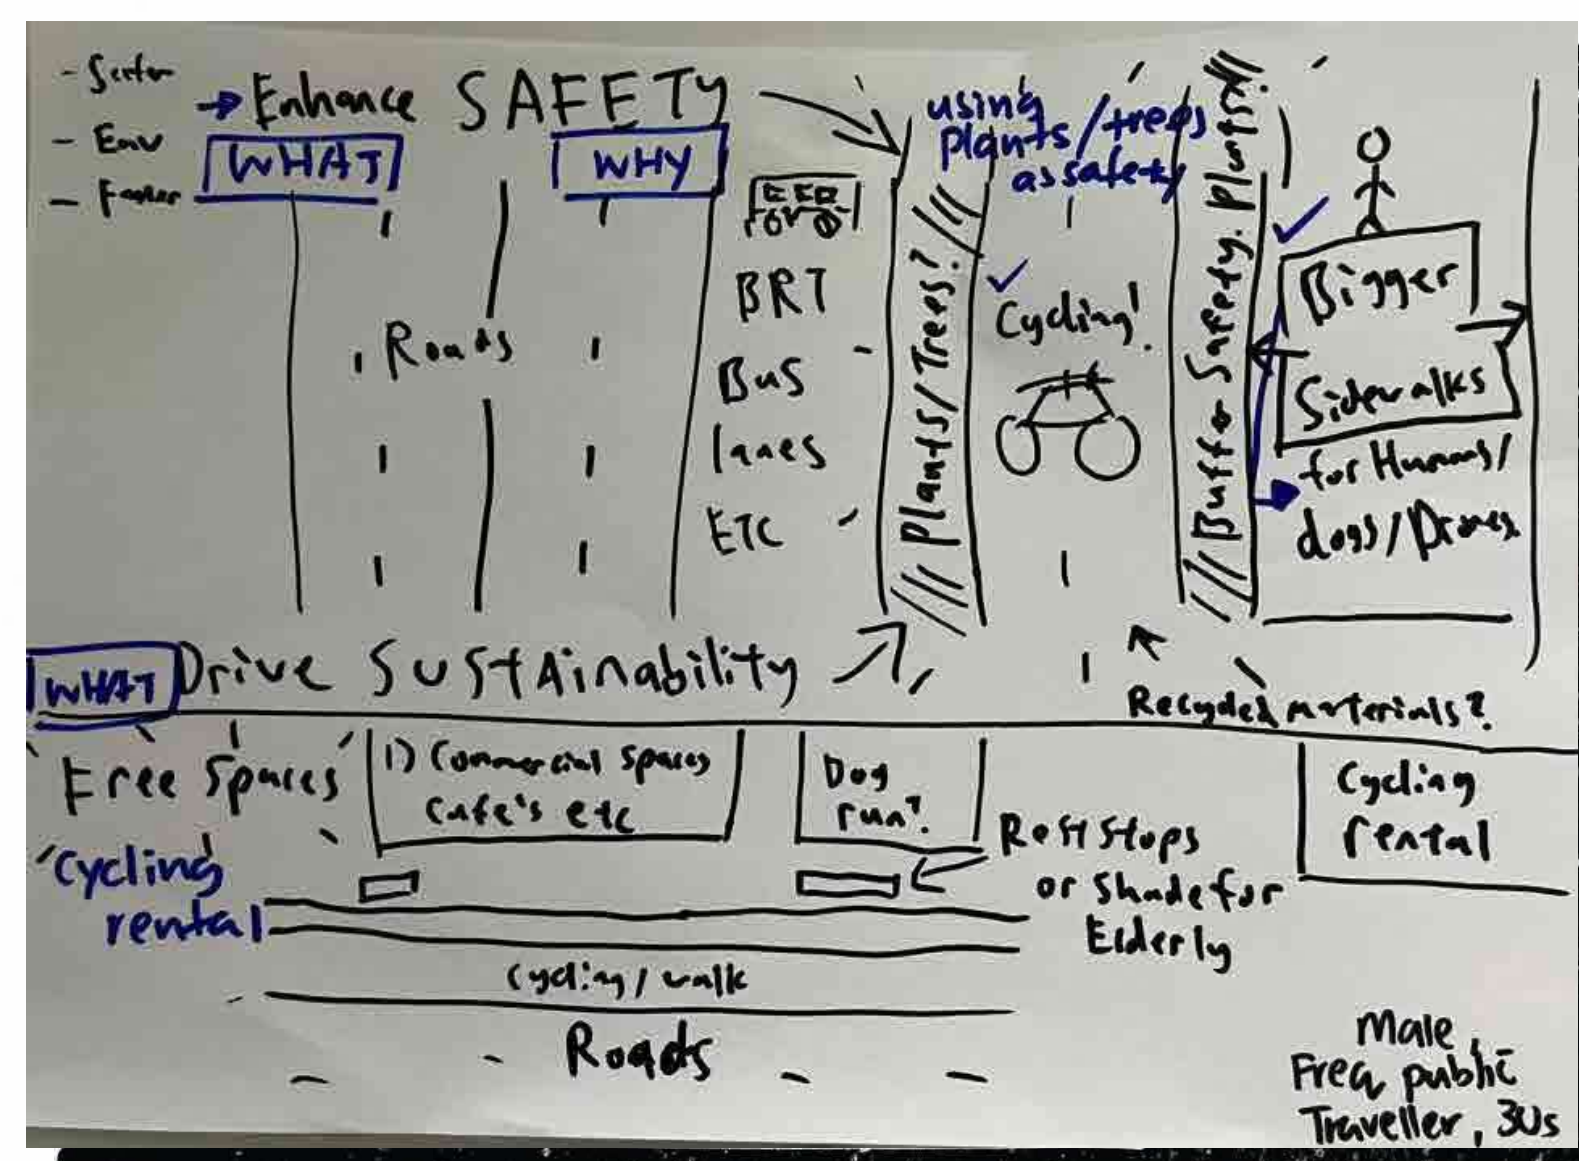 - Safer
- Env
- Faster
→ Enhance SAFETY
WHAT
WHY
using
plants/trees
as safety
Roads
BRT
Bus
lanes
ETC
Plants/Trees?
Cycling!
Buffer Safety. plants?
Bigger
Sidewalks
for Humans/
dogs/Drones
WHAT
Drive SUSTAinability
Recycled materials?
Free Spaces
1) Commercial spaces
cafe's etc
Dog
run?
Cycling
rental
Cycling
rental
Rest stops
or Shade for
Elderly
Cycling/walk
Roads
Male,
Freq public
Traveller, 30s